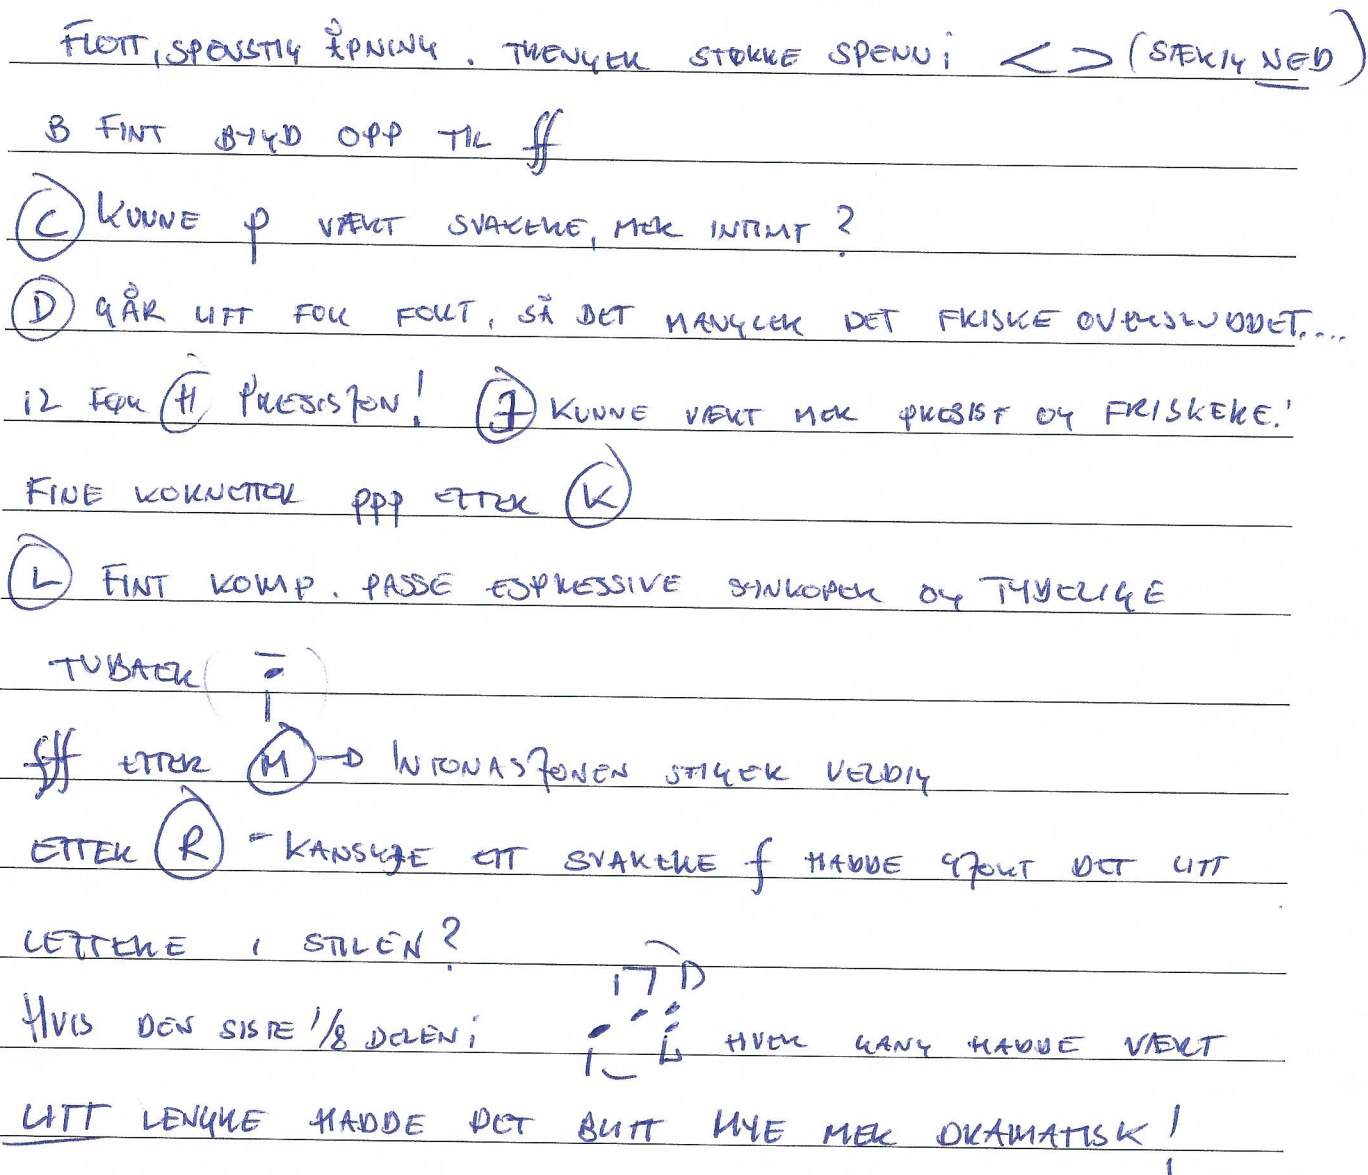 FLOTT, SPENSTIG ÅPNING. TRENGER STØRRE SPENN i < > (SÆRLIG NED)
B FINT BYGD OPP TIL ff
C KUNNE p VÆRT SVAKERE, MER INTIMT?
D GÅR LITT FOR FORT, SÅ DET MANGLER DET FRISKE OVERSKUDDET....
12 FØR H PRESISJON! J KUNNE VÆRT MER PRESIST OG FRISKERE!
FINE KORNETTER ppp ETTER K
L FINT KOMP. PASSE ESPRESSIVE SYNKOPER OG TYDELIGE
TUBAER ( )
fff ETTER M → INTONASJONEN STIGER VELDIG
ETTER R - KANSKJE ETT SVAKERE f HADDE GJORT DET LITT
LETTERE I STILEN?
HVIS DEN SISTE 1/8 DELEN i HVER GANG HADDE VÆRT
LITT LENGRE HADDE DET BLITT MYE MER DRAMATISK!